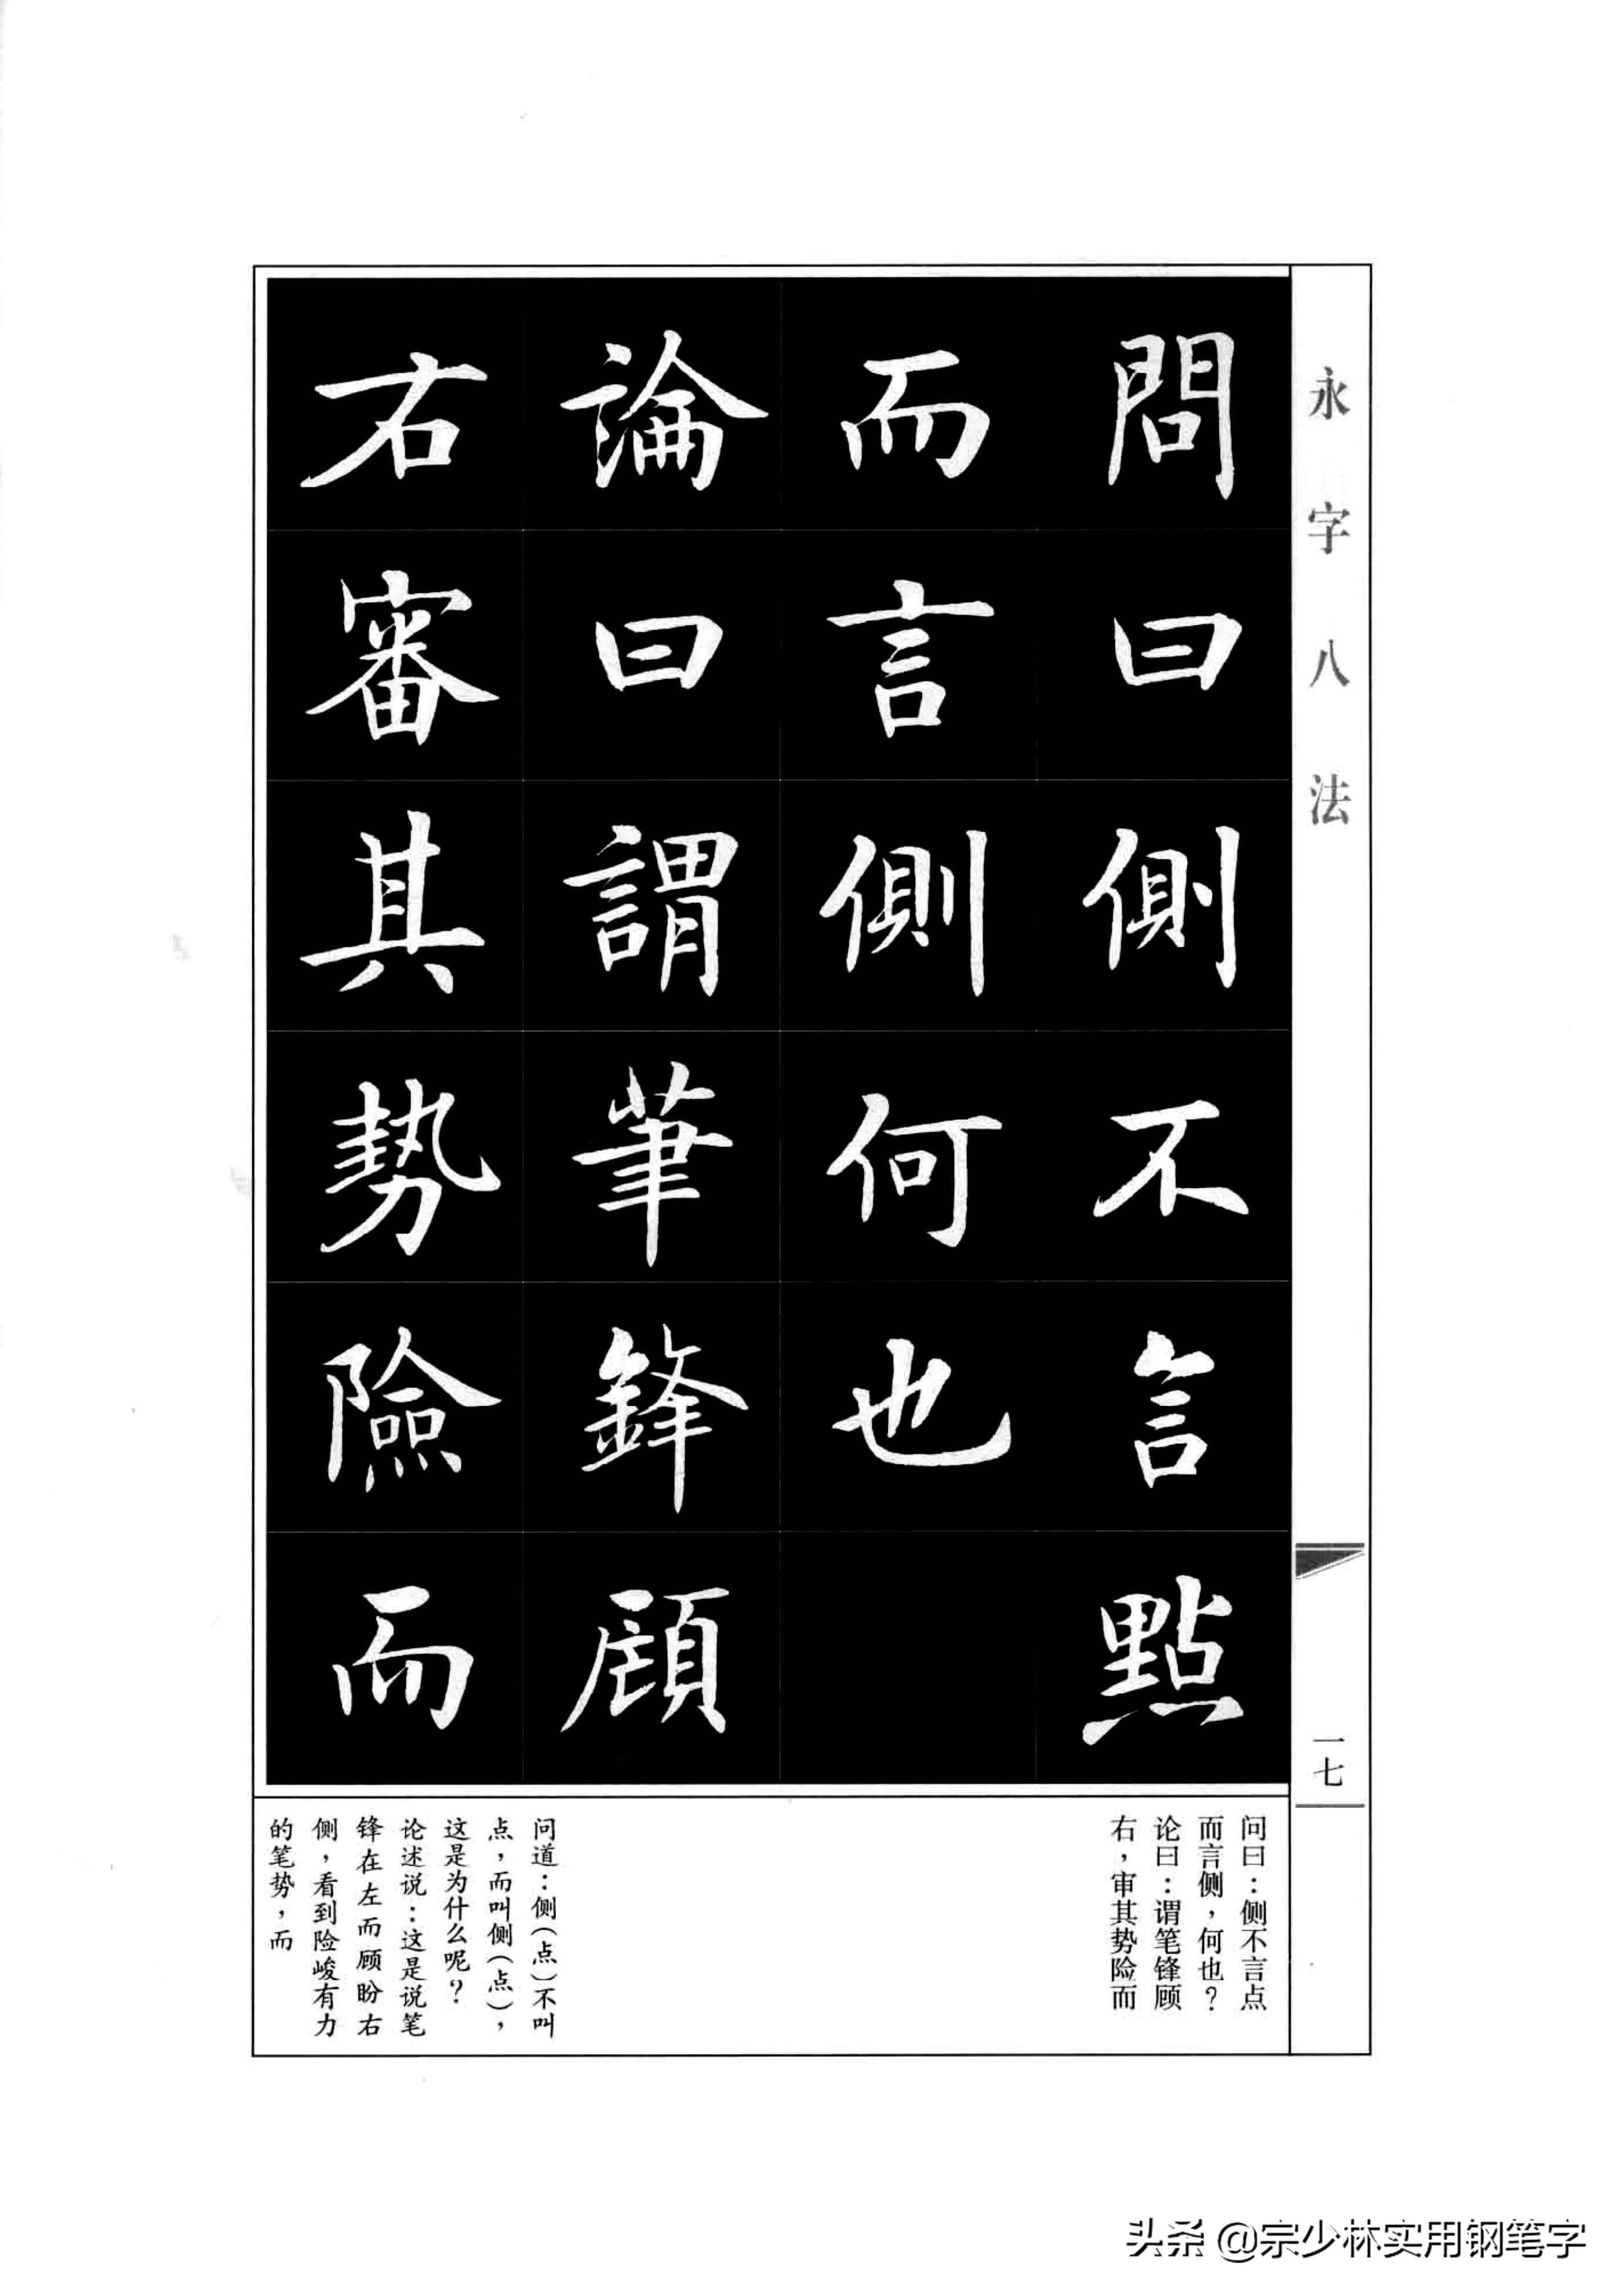 永字八法
一七
問曰側不言點
而言側何也
論曰謂筆鋒顧
右審其勢險而
问曰：侧不言点
而言侧，何也？
论曰：谓笔锋顾
右，审其势险而
问道：侧（点）不叫
点，而叫侧（点），
这是为什么呢？
论述说：这是说笔
锋在左而顾盼右
侧，看到险峻有力
的笔势，而
头条 @宗少林实用钢笔字